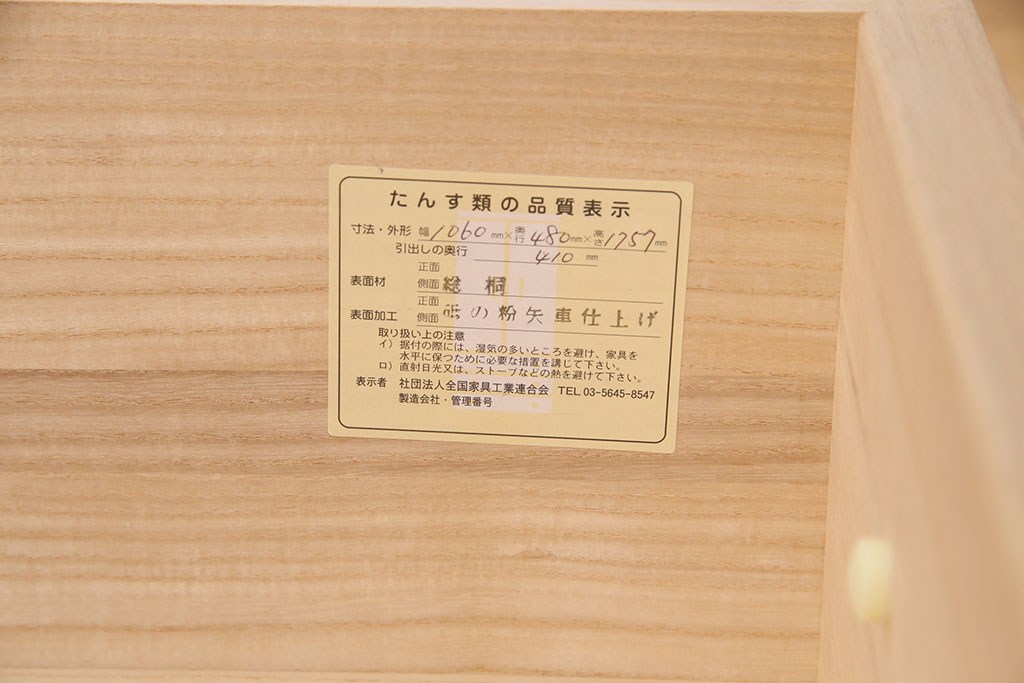 たんす類の品質表示
寸法・外形 幅1060mm×奥行480mm×高さ1757mm
引出しの奥行 410 mm
正面
表面材 側面 総桐
正面
表面加工 側面 砥の粉矢車仕上げ
取り扱い上の注意
イ）据付の際には、湿気の多いところを避け、家具を
水平に保つために必要な措置を講じて下さい。
ロ）直射日光又は、ストーブなどの熱を避けて下さい。
表示者 社団法人全国家具工業連合会 TEL 03-5645-8547
製造会社・管理番号